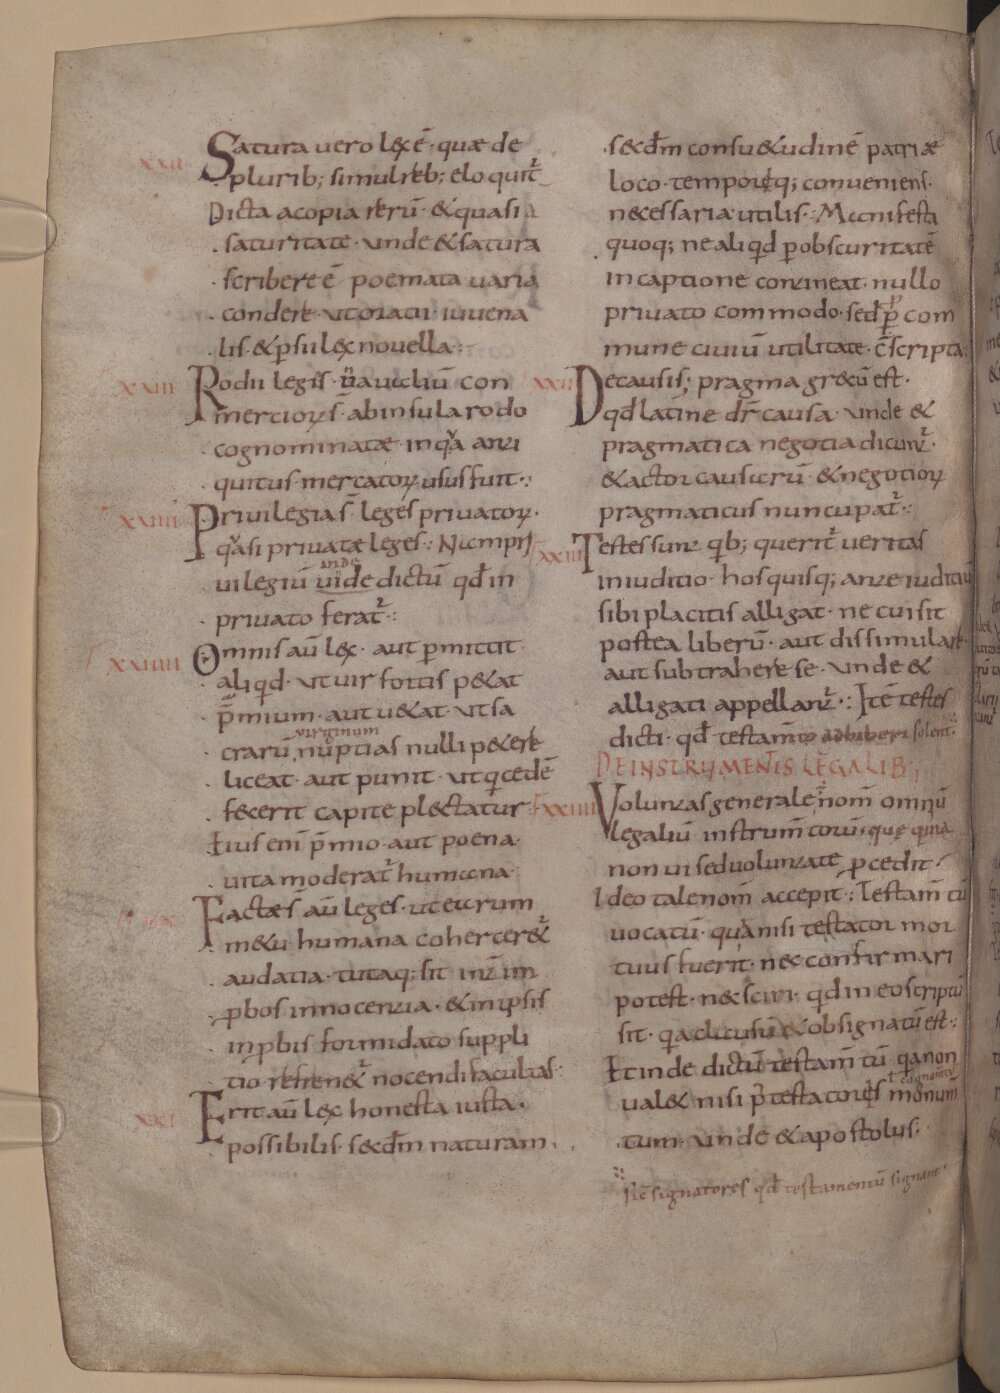 xxii Satura vero lex ē· quae de
plurib; simul reb; eloquit᷑
Dicta a copia rerū· & quasi a
saturitate· unde & satura
scribere ē poemata varia
condere· ut oratii iuvena
lis· & psii· lex novella:·
xxiii Rodii leges· navaliū con
merciorꝝ s̄· ab insula rodo
cognominatae· in qua anti
quitus mercatorꝝ usus fuit·:
xxiiii Privilegia s̄ leges privatorꝝ·
quasi privatae leges·: Nam pri
inde
vilegiū uīde dictū qđ in
privato ferat᷑·:
xxuiiii Omnis aū lex· aut pmittit
aliqid· ut vir fortis p&at
p̄mium· aut u&at· ut sa
virginum
crarū nuptias nulli p&ere
liceat· aut punit· ut qi cedē
fecerit capite plectatur·
Eius enī p̄mio· aut poena
vita moderat᷑ humana·
xx Factae s̄ aū leges· ut earum
m&u humana coherceret᷑
audatia· tutaq; sit int̄ im
pbos innocentia· & in ipsis
inpbis formidato suppli
tio refren&᷑ nocendi facultas:·
xxi Erit aū lex honesta iusta·
possibilis· s&cđm naturam·
s&cđm consu&udinē patriae
loco· temporiq; conveniens·
necessaria utilis·: Manifesta
quoq; ne aliqid p obscuritatē
in captione contineat· nullo
privato commodo· sed p com
mune civiū utilitate· c̄scripta·
xxii De causis; pragma grecū est·
qđ latine dr̄ causa· unde &
pragmatica negotia dicunt᷑·
& actor causarū· & negotiorꝝ
pragmaticus nuncupat᷑·:
xxiii Testes sunt qib; querit᷑ veritas
in iuditio· hos quisq; ante iuditiū
sibi placitis alligat· ne cui sit
postea liberū· aut dissimulare
aut subtrahere se· unde &
alligati appellant᷑·: Itē testes
dicti· qđ testam̄to adhiberi solent·
DE INSTRUMENTIS LEGALIB;
xxiiii Voluntas generale nom̄ omniū
legaliū instrum̄torū· quę quia
non vi sed voluntate pcedit·
Ideo tale nom̄ accepit·: Testam̄tū
vocatū· quia nisi testator mor
tuus fuerit· nec confirmari
potest· n& sciri· qđ in eo scriptū
sit· qia clausū & obsignatū est·:
Et inde dictū testam̄tū· qia non
val& nisi p̄ testatoris monum
tum· unde & apostolus·
Itē signatores qđ testamentū signant·